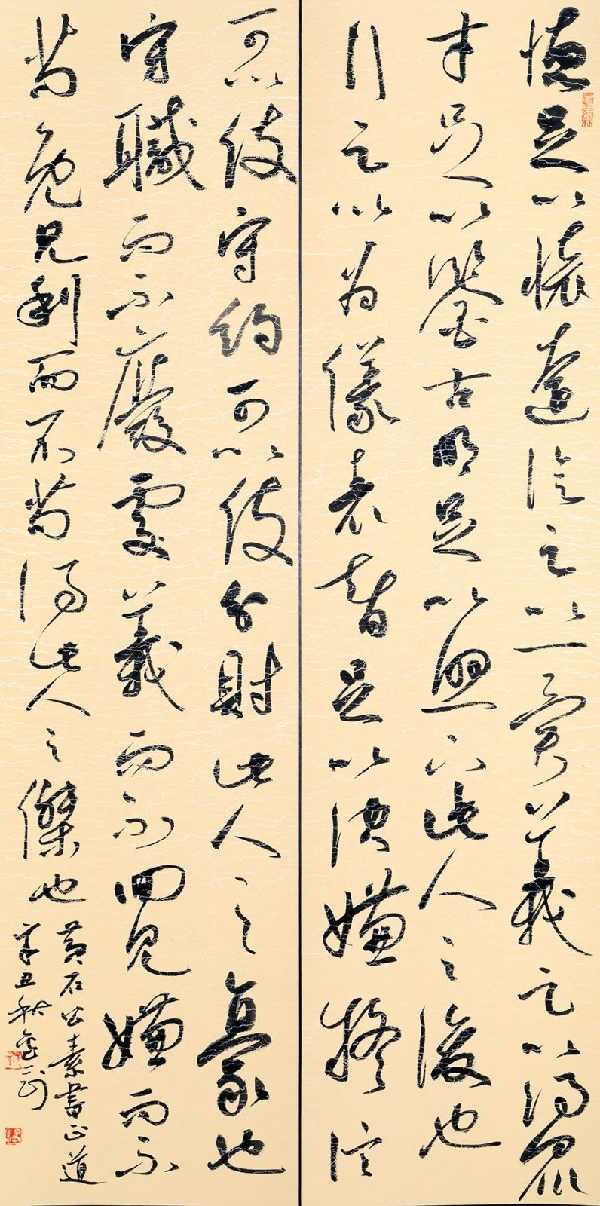 德足以懷遠信足以一異義足以得眾
才足以鑒古明足以照下此人之俊也
行足以為儀表智足以決嫌疑信
可以使守約可以使分財此人之豪也
守職而不廢處義而不回見嫌而不
苟免見利而不苟得此人之傑也
黃石公素書正道
辛丑秋